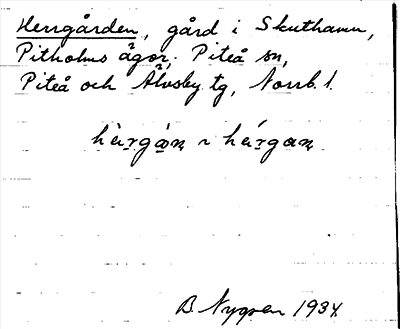 Herrgården, gård i Skuthamn,
Pitholms ägor, Piteå sn,
Piteå och Älvsby tg, Norrb. l.
hæ̀rgán ~ hǽrgan
B. Nygren 1934.